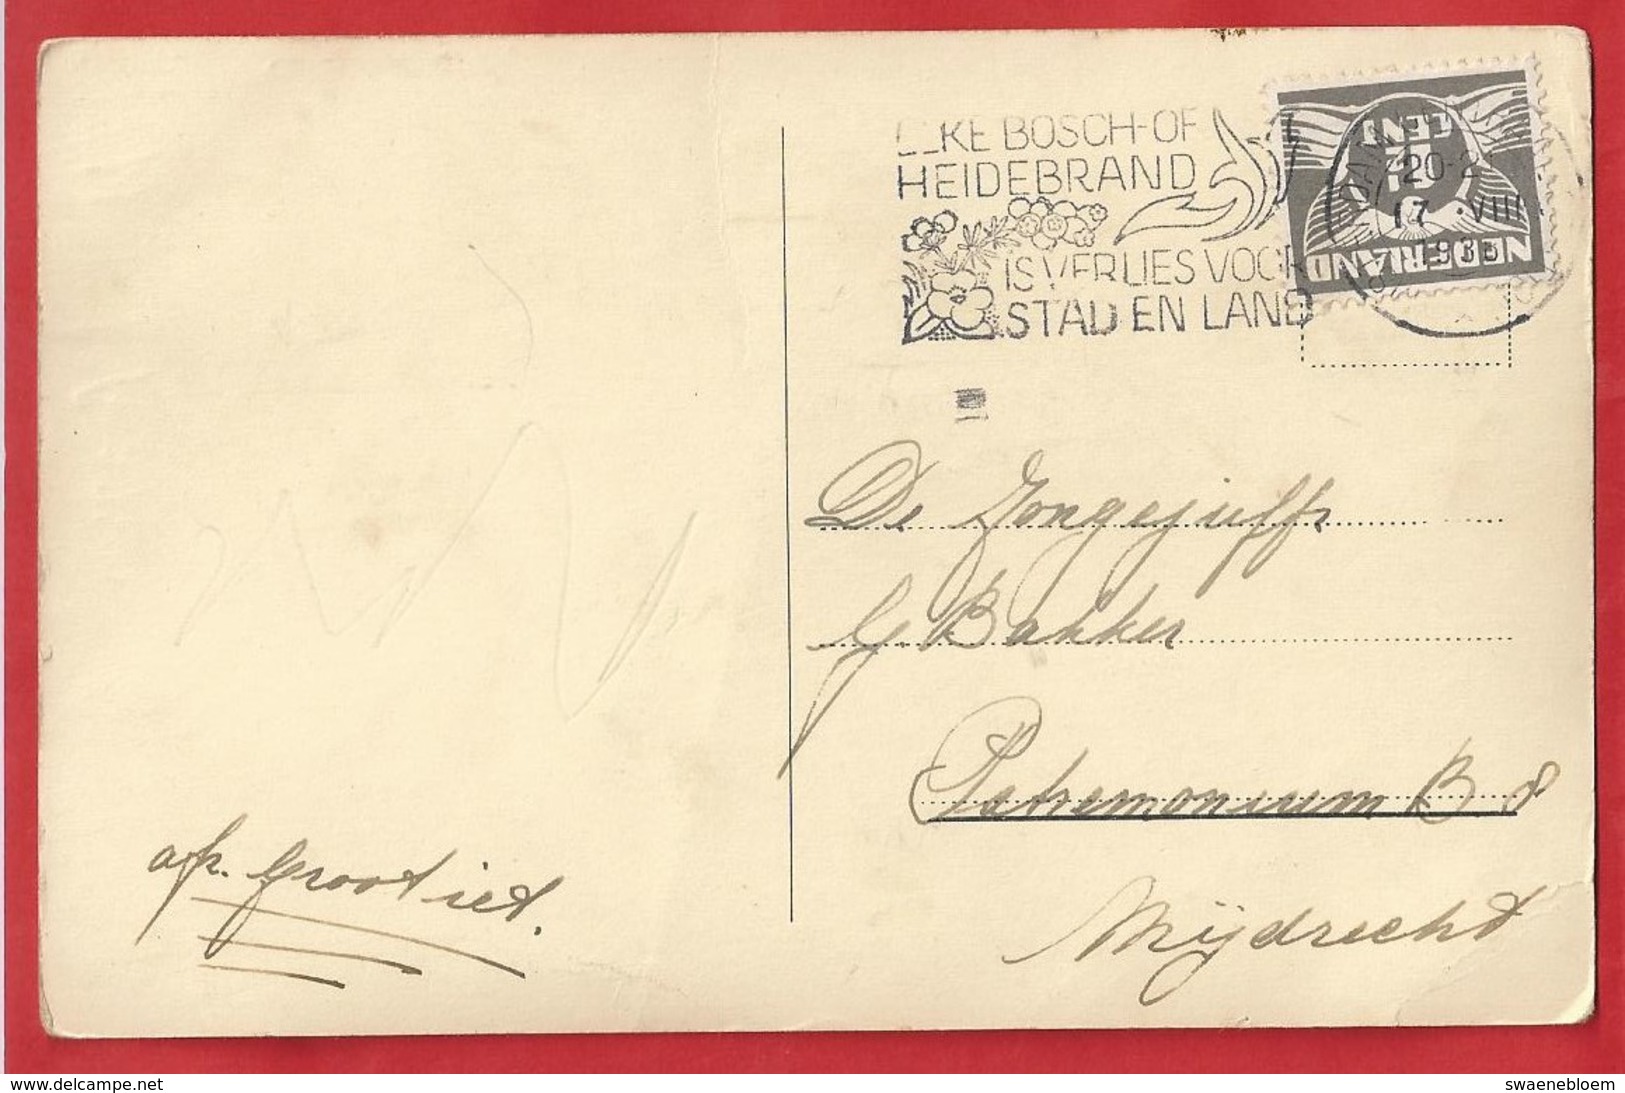 ELKE BOSCH-OF
HEIDEBRAND
IS VERLIES VOOR
STAD EN LAND
CENT
20-2
17 VIII
193
NEDERLAND
De Jongejuffr
G. Bakker
Patremonium B 8
Mijdrecht
afz. Grootiet.
www.delcampe.net
swaenebloem